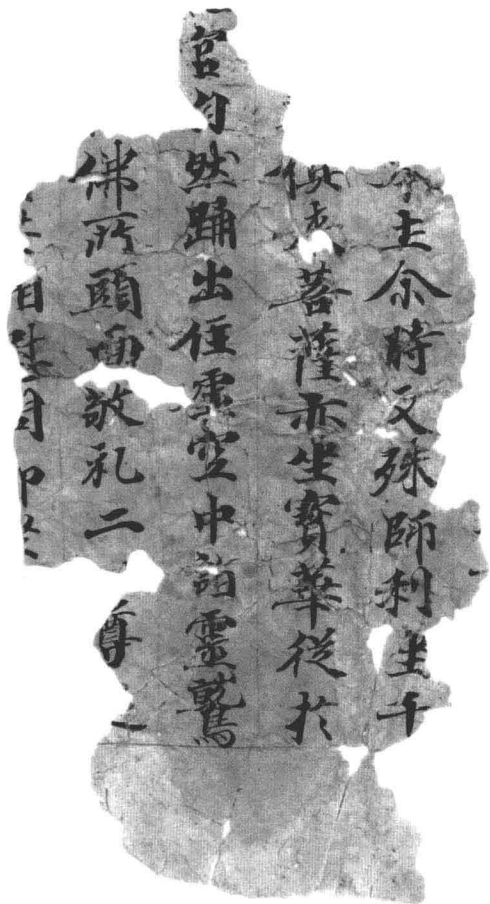 本土尒時文殊師利坐千
俱来菩薩亦坐寶華從於
宮自然踊出住虛空中詣靈鷲
佛所頭面敬礼二尊